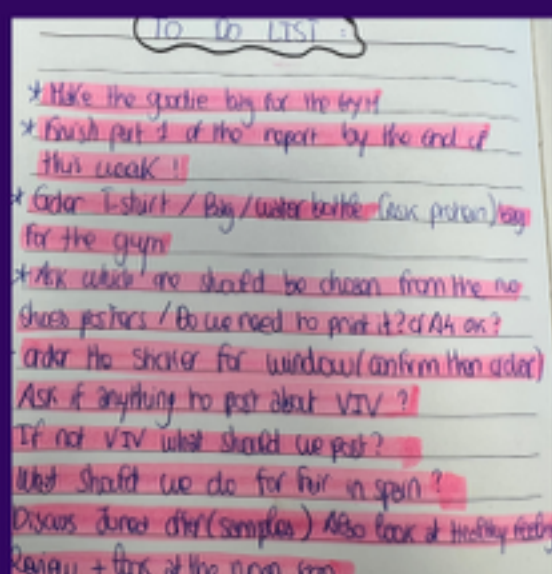 TO DO LIST :
* Make the goodie bag for the GYM
* Finish part 1 of the report by the end of
this weak !
* Order T-shirt / Bag / water bottle (ask protein) bag
for the gym
* Ask which one should be chosen from the no
shoes posters / Do we need to print it? A4 ok?
order the sticker for window (confirm then order)
Ask if anything to post about VIV ?
If not VIV what should we post?
What should we do for fair in spain ?
Discuss offer (samples) Also look at Healthy
Review + look at the